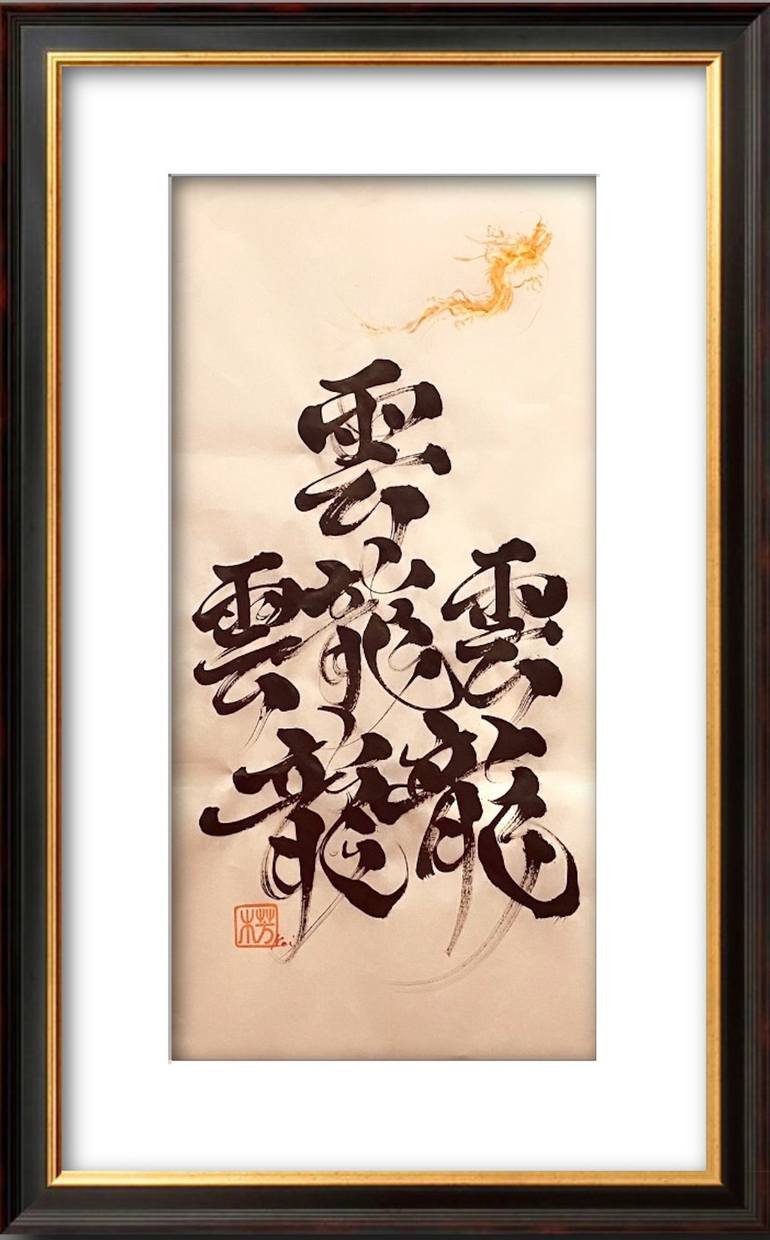 雲
雲龍雲
龍龍